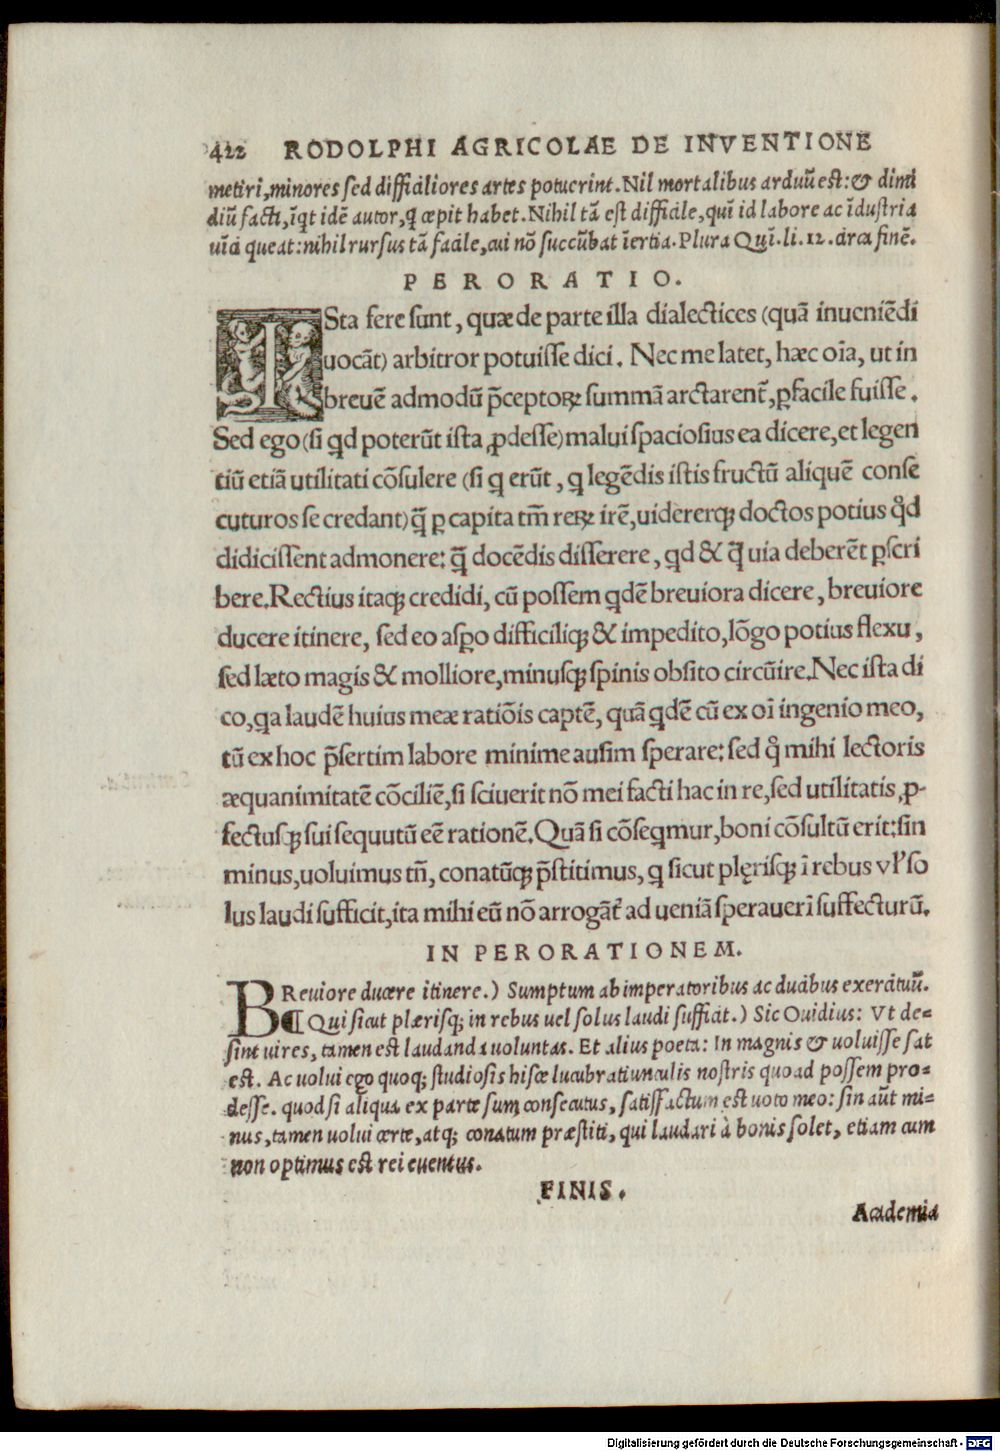 422 RODOLPHI AGRICOLAE DE INVENTIONE
metiri, minores sed difficiliores artes potuerint. Nil mortalibus arduũ est: & dimi
diũ facti, ĩqt idẽ autor, q̃ cœpit habet. Nihil tã est difficile, quĩ id labore ac ĩdustria
uĩci queat: nihil rursus tã facile, cui nõ succũbat ĩertia. Plura Quĩ. li. 12. circa finẽ.
PERORATIO.
ISta fere sunt, quæ de parte illa dialectices (quã inueniẽdi
uocãt) arbitror potuisse dici. Nec me latet, hæc oĩa, ut in
breuẽ admodũ p̃ceptoꝝ summã arctarent̃, ꝑfacile fuisse.
Sed ego (si qd poterũt ista ꝓdesse) malui spaciosius ea dicere, et legen
tiũ etiã utilitati cõsulere (si q erũt, q legẽdis istis fructũ aliquẽ conse
cuturos se credant) q̃ ꝑ capita tm̃ reꝝ irẽ, uidererq; doctos potius qd̃
didicissent admonere: q̃ docẽdis disserere, qd & q̃ uia deberẽt ꝑscri
bere. Rectius itaq; credidi, cũ possem qdẽ breuiora dicere, breuiore
ducere itinere, sed eo aspo difficiliq; & impedito, lõgo potius flexu,
sed læto magis & molliore, minusq; spinis obsito circũire. Nec ista di
co, qa laudẽ huius meæ ratiõis captẽ, quã qdẽ cũ ex oĩ ingenio meo,
tũ ex hoc p̃sertim labore minime ausim sperare: sed q̃ mihi lectoris
æquanimitatẽ cõciliẽ, si sciuerit nõ mei facti hac in re, sed utilitatis, ꝓ-
fectusq; sui sequutũ eẽ rationẽ. Quã si cõseqmur, boni cõsultũ erit: sin
minus, uoluimus tñ, conatũq; p̃stitimus, q sicut plęrisq; ĩ rebus vl' so
lus laudi sufficit, ita mihi eũ nõ arrogãt̃ ad ueniã sperauerĩ suffecturũ.
IN PERORATIONEM.
BReuiore ducere itinere.) Sumptum ab imperatoribus ac ducibus exercituũ.
¶ Qui sicut plærisq; in rebus uel solus laudi sufficit.) Sic Ouidius: Vt de=
sint uires, tamen est laudanda uoluntas. Et alius poeta: In magnis & uoluisse sat
est. Ac uolui ego quoq; studiosis hisce lucubratiunculis nostris quoad possem pro=
desse. quod si aliqua ex parte sum consecutus, satisfactum est uoto meo: sin aũt mi=
nus, tamen uolui certe, atq; conatum præstiti, qui laudari à bonis solet, etiam cum
non optimus est rei euentus.
FINIS.
Academia
Digitalisierung gefördert durch die Deutsche Forschungsgemeinschaft - DFG